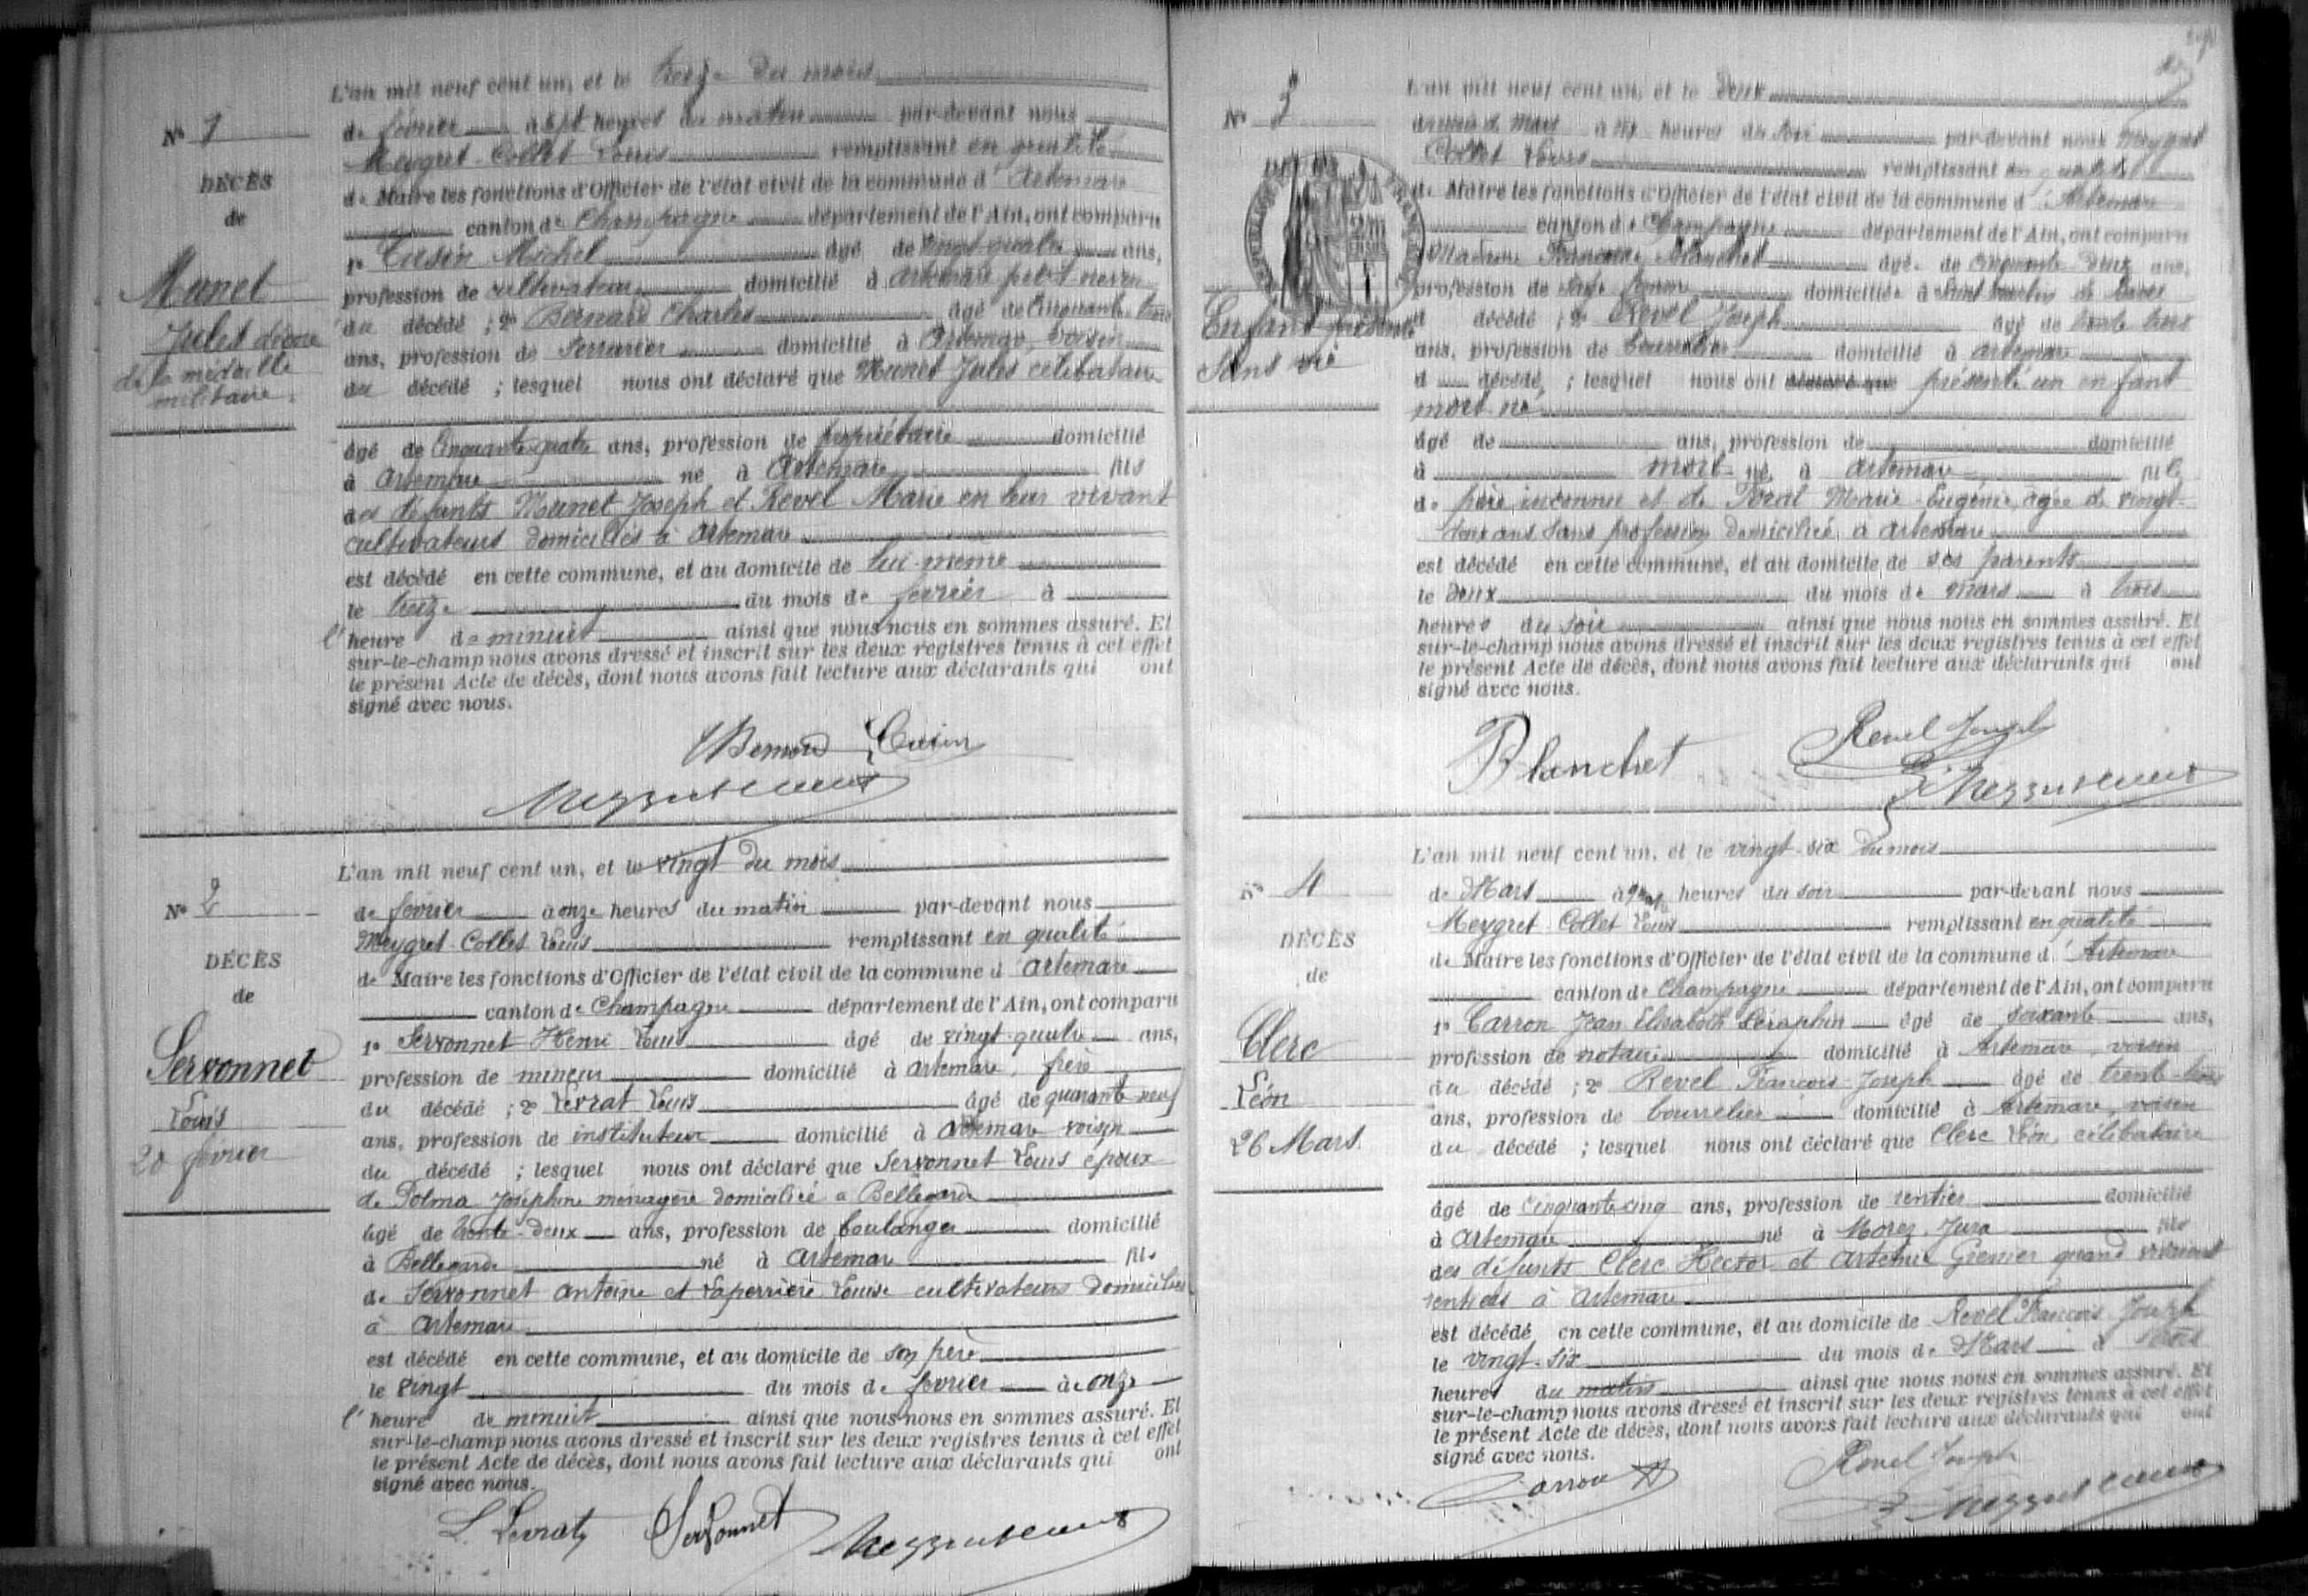 L'an mil neuf cent un, et le treize du mois
N° 1
de février à sept heures du matin par-devant nous
Meygret-Collet Louis remplissant en qualité
DÉCÈS
de Maire les fonctions d'Officier de l'état civil de la commune d'Artemare
de
canton de Champagne département de l'Ain, ont comparu
1° Cusin Michel âgé de vingt-quatre ans,
Munet
profession de cultivateur domicilié à Artemare petit neveu
Jules décoré
du décédé ; 2° Bernard Charles âgé de Cinquante-trois
de la médaille
ans, profession de Serrurier domicilié à Artemare, voisin
militaire.
du décédé ; lesquel nous ont déclaré que Munet Jules célibataire
âgé de Cinquante-quatre ans, profession de propriétaire domicilié
à Artemare né à Artemare fils
des défunts Munet Joseph et Revel Marie en leur vivant
cultivateurs domiciliés à Artemare
est décédé en cette commune, et au domicile de lui-même
le treize du mois de février à
l'heure de minuit ainsi que nous nous en sommes assuré. Et
sur-le-champ nous avons dressé et inscrit sur les deux registres tenus à cet effet
le présent Acte de décès, dont nous avons fait lecture aux déclarants qui ont
signé avec nous.
Bernard Cusin
L'an mil neuf cent un, et le vingt du mois
N° 2
de février à onze heures du matin par-devant nous
Meygret-Collet Louis remplissant en qualité
DÉCÈS
de Maire les fonctions d'Officier de l'état civil de la commune d'Artemare
de
canton de Champagne département de l'Ain, ont comparu
1° Servonnet Henri Louis âgé de vingt-quatre ans,
Servonnet
profession de mineur domicilié à Artemare, frère
Louis
du décédé ; 2° Levrat Louis âgé de quarante neuf
20 février
ans, profession de instituteur domicilié à Artemare voisin
du décédé ; lesquel nous ont déclaré que Servonnet Louis époux
de Polma Joséphine ménagère domiciliée à Bellegarde
âgé de trente-deux ans, profession de boulanger domicilié
à Bellegarde né à Artemare fils
de Servonnet Antoine et Laperrière Louise cultivateurs domiciliés
à Artemare
est décédé en cette commune, et au domicile de son père
le vingt du mois de février à onze
l'heure de minuit ainsi que nous nous en sommes assuré. Et
sur-le-champ nous avons dressé et inscrit sur les deux registres tenus à cet effet
le présent Acte de décès, dont nous avons fait lecture aux déclarants qui ont
signé avec nous.
L. Levrat Servonnet
L'an mil neuf cent un, et le deux
N° 3
du mois de Mars à heures du soir par-devant nous Meygret
Collet Louis remplissant en qualité
de Maire les fonctions d'Officier de l'état civil de la commune d'Artemare
canton de Champagne département de l'Ain, ont comparu
Blanchet âgée de cinquante deux ans,
profession de Sage femme domiciliée à
Enfant présenté
décédé ; 2° Revel Joseph âgé de trente trois
Sans vie
ans, profession de bourrelier domicilié à Artemare
d décédé ; lesquel nous ont déclaré que présenté un enfant
mort-né
âgé de ans, profession de domicilié
à mort-né à Artemare fil
de père inconnu et de Marie-Eugénie, âgée de vingt-
deux ans sans profession domiciliée à Artemare
est décédé en cette commune, et au domicile de ses parents
le deux du mois de Mars à trois
heures du soir ainsi que nous nous en sommes assuré. Et
sur-le-champ nous avons dressé et inscrit sur les deux registres tenus à cet effet
le présent Acte de décès, dont nous avons fait lecture aux déclarants qui ont
signé avec nous.
Blanchet Revel Joseph
L'an mil neuf cent un, et le vingt-six du mois
N° 4
de Mars à quatre heures du soir par-devant nous
Meygret-Collet Louis remplissant en qualité
DÉCÈS
de Maire les fonctions d'Officier de l'état civil de la commune d'Artemare
de
canton de Champagne département de l'Ain, ont comparu
1° Carron Jean Elisabeth Séraphin âgé de soixante ans,
Clerc
profession de notaire domicilié à Artemare, voisin
Léon
du décédé ; 2° Revel François-Joseph âgé de trente-trois
26 Mars.
ans, profession de bourrelier domicilié à Artemare, voisin
du décédé ; lesquel nous ont déclaré que Clerc Léon, célibataire
âgé de Cinquante-cinq ans, profession de rentier domicilié
à Artemare né à Morez-Jura fils
des défunts Clerc Hector et Artémie Grenier quand vivaient
rentiers à Artemare
est décédé en cette commune, et au domicile de Revel François Joseph
le vingt-six du mois de Mars à
heures du matin ainsi que nous nous en sommes assuré. Et
sur-le-champ nous avons dressé et inscrit sur les deux registres tenus à cet effet
le présent Acte de décès, dont nous avons fait lecture aux déclarants qui ont
signé avec nous.
Carron Revel Joseph